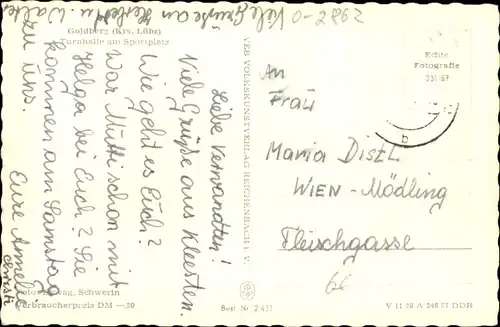 2982-0- Viele Grüße an Herbert u. Walter
Goldberg (Krs. Lübz)
Turnhalle am Sportplatz
Liebe Verwandten!
Viele Grüße aus Kleesten.
Wie geht es Euch?
War Mutti schon mit
Helga bei Euch? Sie
kommen am Samstag
zu uns.
Eure Annelie
Christi
Schwerin
Verbraucherpreis DM —,20
VEB VOLKSKUNSTVERLAG REICHENBACH I. V.
Best. Nr. 2/431
Echte
Fotografie
231/67
An
Frau
Maria Distl
WIEN-Mödling
Fleischgasse
V 11 28 A 246/57 DDR